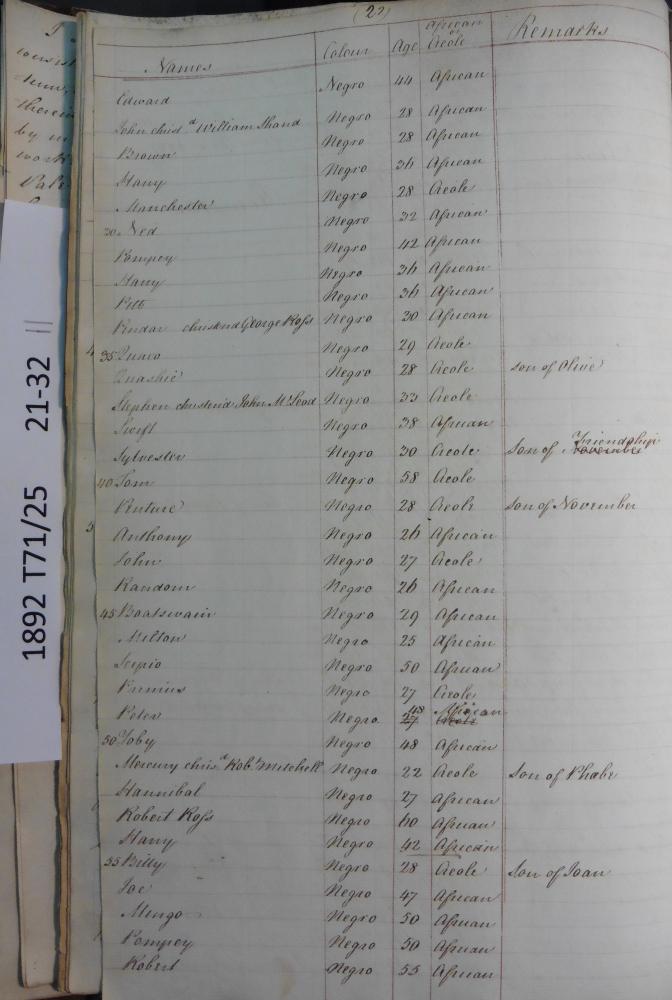 (22)
Names Colour Age African or Creole Remarks
Edward Negro 44 African
John chris^d William Shand Negro 28 African
Brown Negro 28 African
Harry Negro 36 African
Manchester Negro 28 Creole
30 Ned Negro 32 African
Pompey Negro 42 African
Harry Negro 36 African
Pitt Negro 36 African
Pindar christend George Ross Negro 30 African
35 Quaco Negro 29 Creole
Quashie Negro 28 Creole son of Olive
Stephen christen'd John McLeod Negro 33 Creole
Swift Negro 38 African
Sylvester Negro 30 Creole Son of November Friendship
40 Tom Negro 58 Creole
Negro 28 Creole son of November
Anthony Negro 26 African
John Negro 27 Creole
Random Negro 26 African
45 Boatswain Negro 29 African
Milton Negro 25 African
Scipio Negro 50 African
Primus Negro 27 Creole
Peter Negro 27 48 Creole African
50 Toby Negro 48 African
Mercury chris^d Rob^t Mitchell Negro 22 Creole Son of Phabe
Hannibal Negro 27 African
Robert Ross Negro 40 African
Harry Negro 42 African
55 Billy Negro 28 Creole Son of Joan
Joe Negro 47 African
Mingo Negro 50 African
Pompey Negro 50 African
Robert Negro 55 African
1892 T71/25 21-32